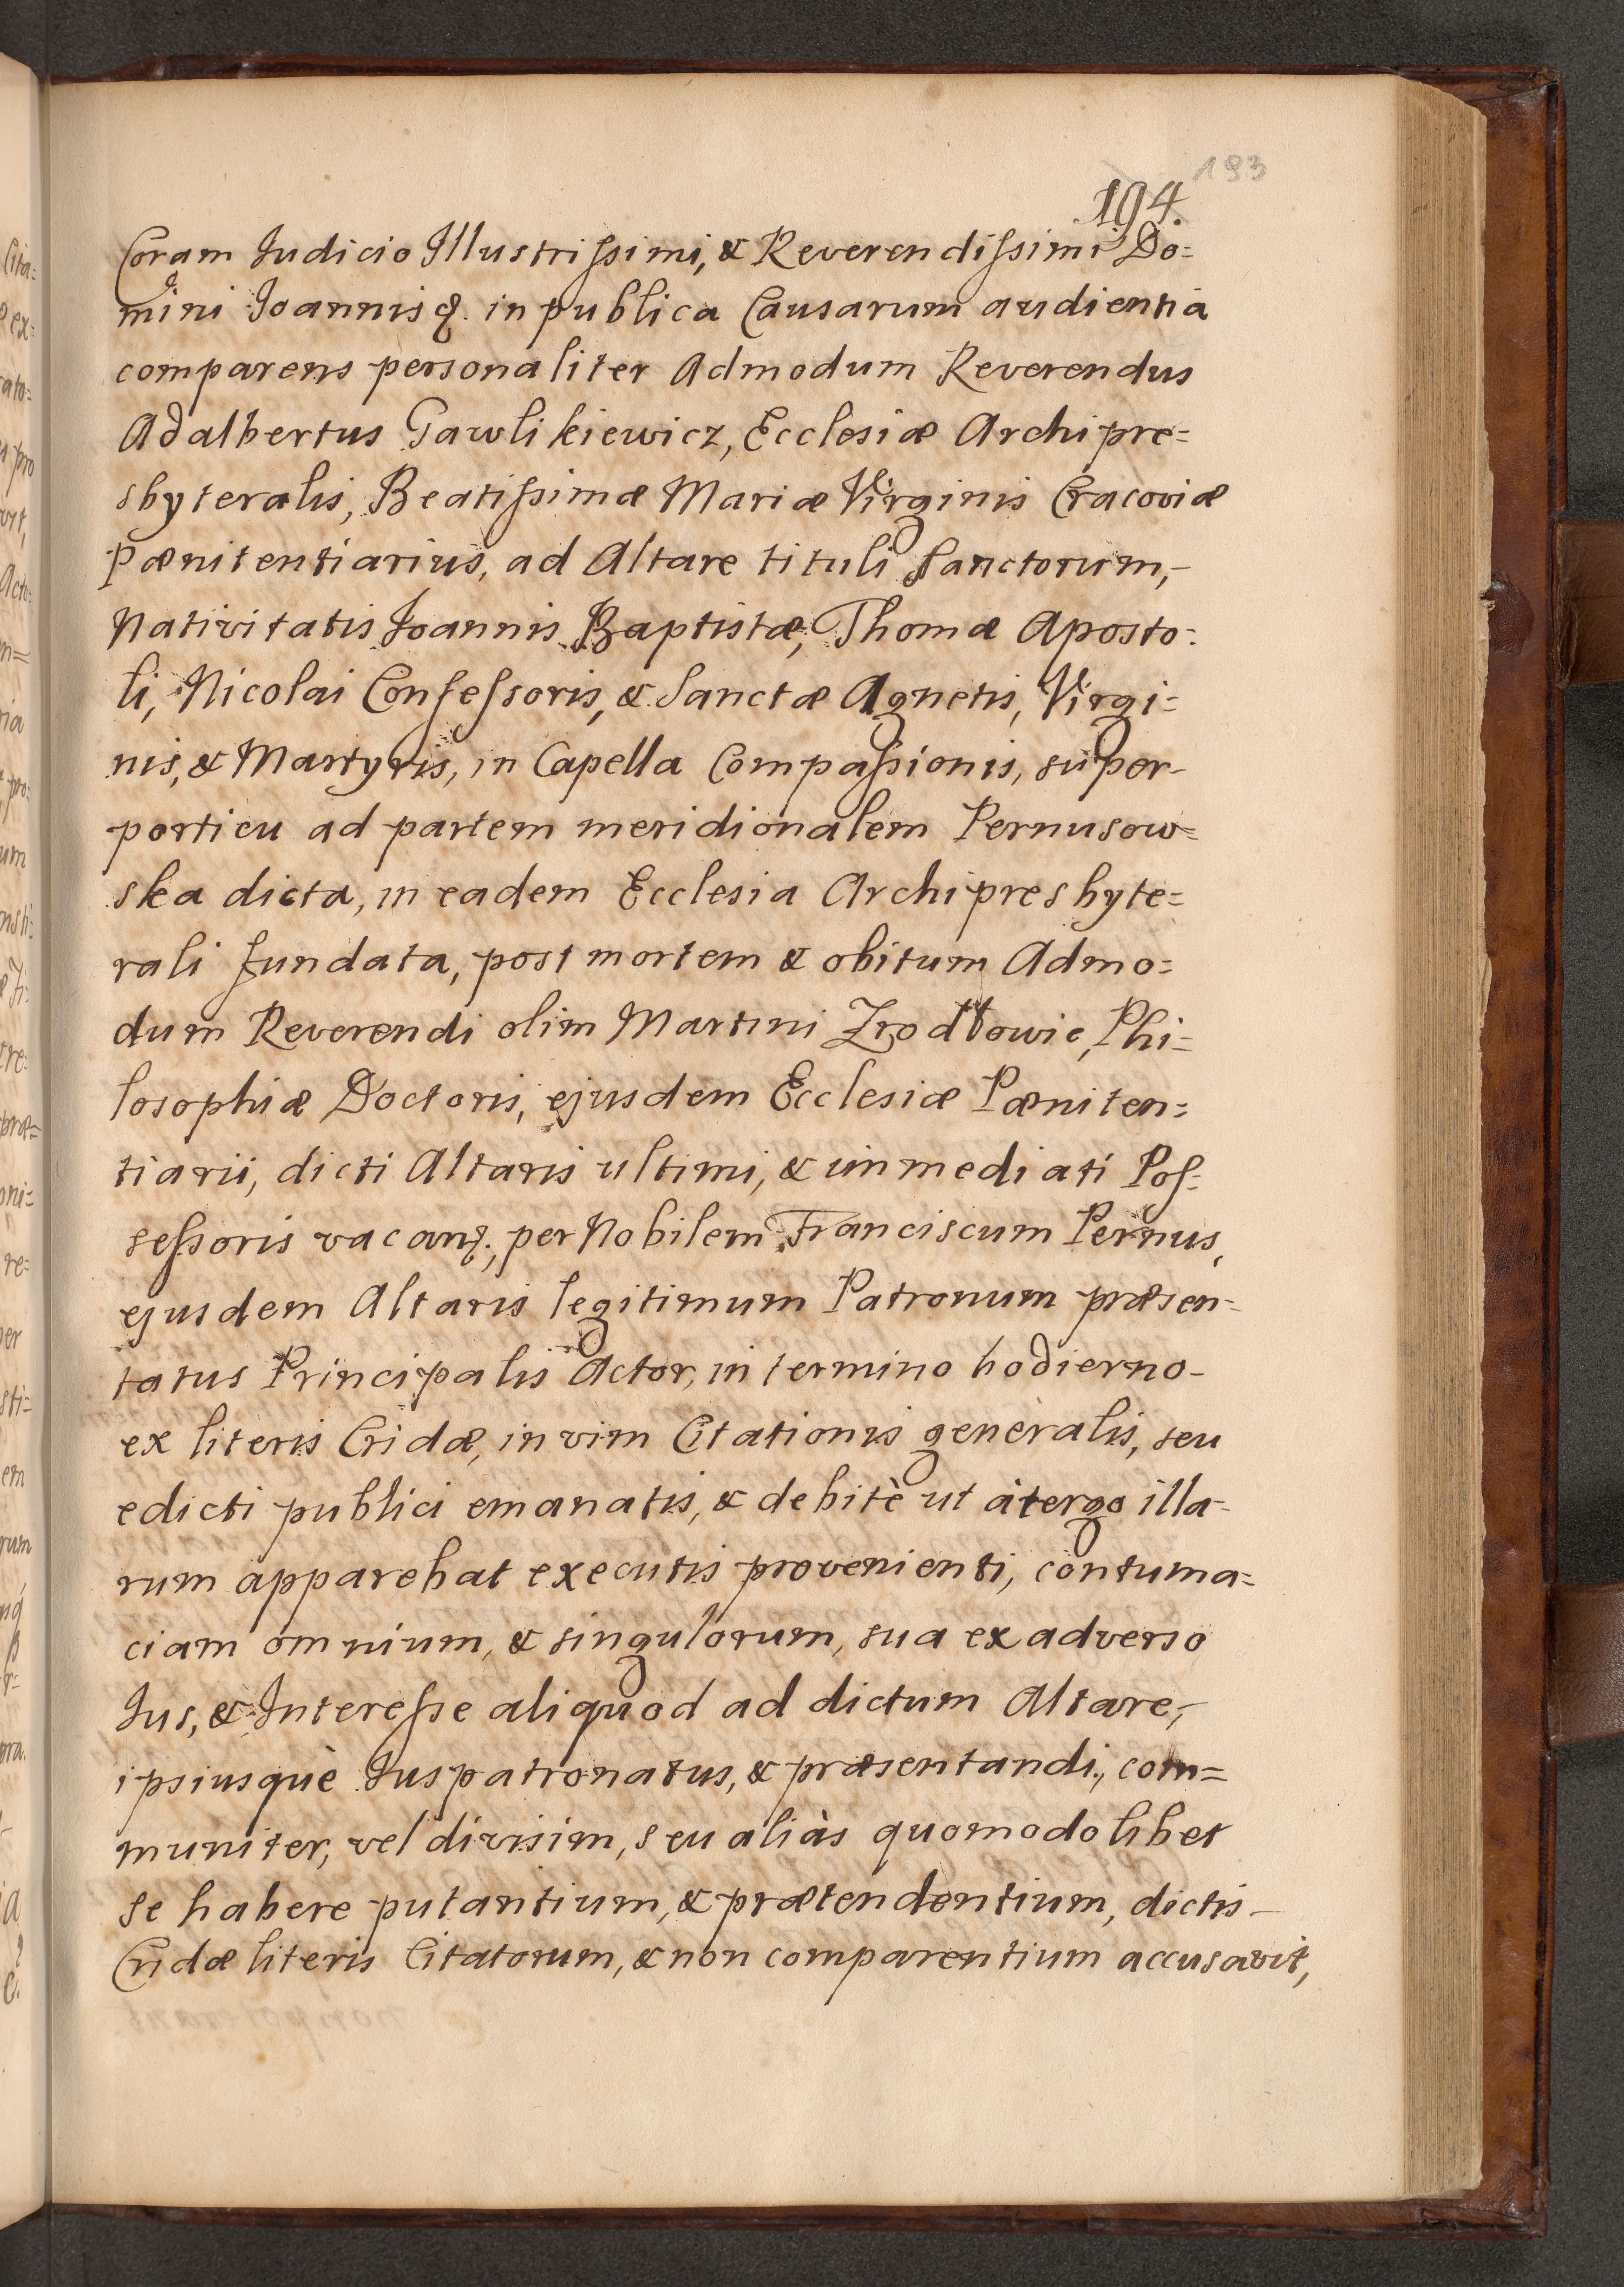 193
194.
Coram Iudicio Illustrissimi, & Reverendissimi Do=
mini Ioannis &. in publica Causarum audientia
comparens personaliter Admodum Reverendus
Adalbertus Gawlikiewicz, Ecclesiæ Archipre=
sbyteralis, Beatissimæ Mariæ Virginis Cracoviæ
Pænitentiarius, ad Altare tituli Sanctorum,-
Nativitatis Ioannis Baptistæ, Thomæ Aposto=
li, Nicolai Confessoris, & Sanctæ Agnetis, Virgi=
nis, & Martyris, in Capella Compassionis, super-
porticu ad partem meridionalem Pernusow=
ska dicta, in eadem Ecclesia Archipresbyte=
rali fundata, post mortem & obitum Admo=
dum Reverendi olim Martini Zrodłowic, Phi=
losophiæ Doctoris, ejusdem Ecclesiæ Pæniten=
tiarii, dicti Altaris ultimi, & immediati Pos=
sessoris vacan&., per Nobilem Franciscum Pernus,
ejusdem Altaris legitimum Patronum præsen=
tatus Principalis Actor, in termino hodierno-
ex literis Cridæ, in vim Citationis generalis, seu
edicti publici emanatis, & debitè ut àtergo illa=
rum apparebat executis provenienti, contuma=
ciam omnium, & singulorum, sua ex adverso
Ius, & Interesse aliquod ad dictum Altare,-
ipsiusquè Iuspatronatus, & præsentandi, com=
muniter, vel divisim, seu aliàs quomodolibet
se habere putantium, & prætendentium, dictis-
Cridæ literis Citatorum, & non comparentium accusavit,